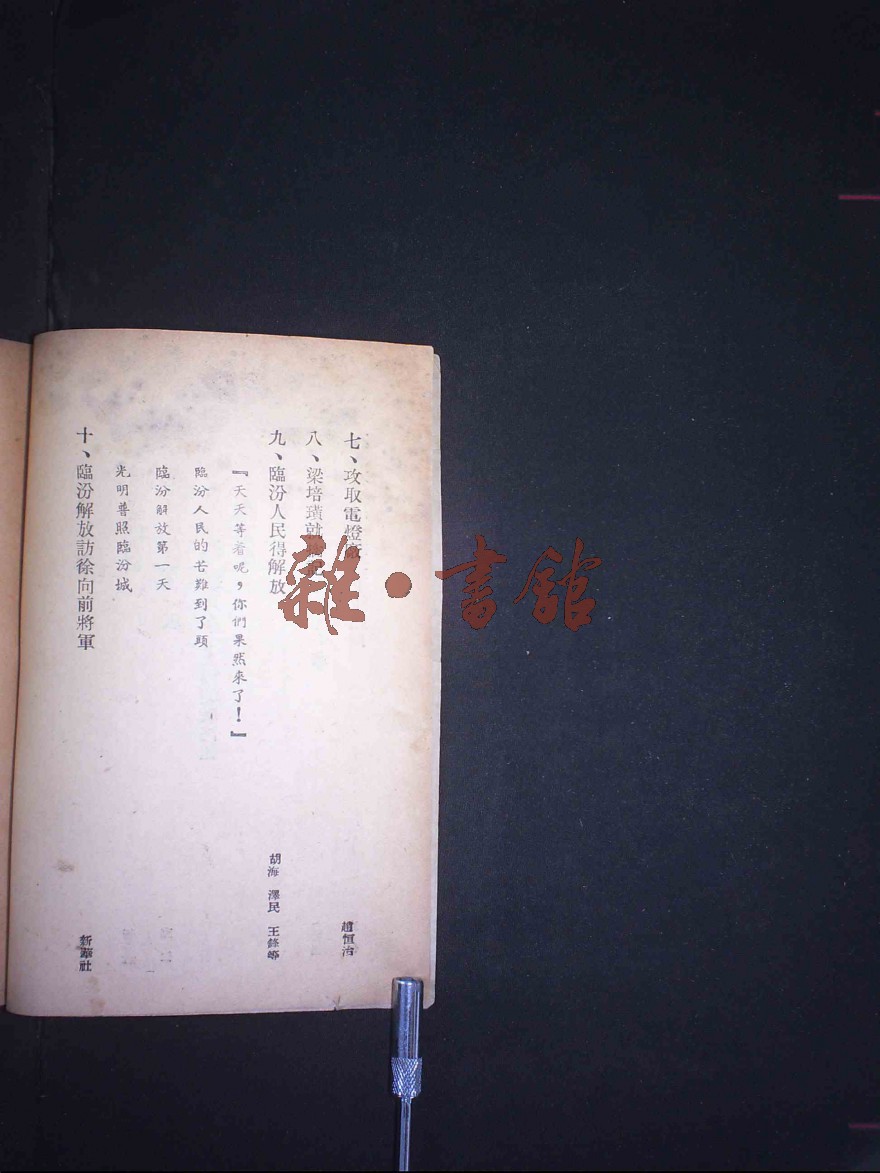 七、攻取電燈廠
趙恒治
八、梁培璜就擒記
九、臨汾人民得解放
胡海 澤民 王修
『天天等着呢，你們果然來了！』
臨汾人民的苦難到了頭
臨汾解放第一天
光明普照臨汾城
十、臨汾解放訪徐向前將軍
新華社
雜·書館